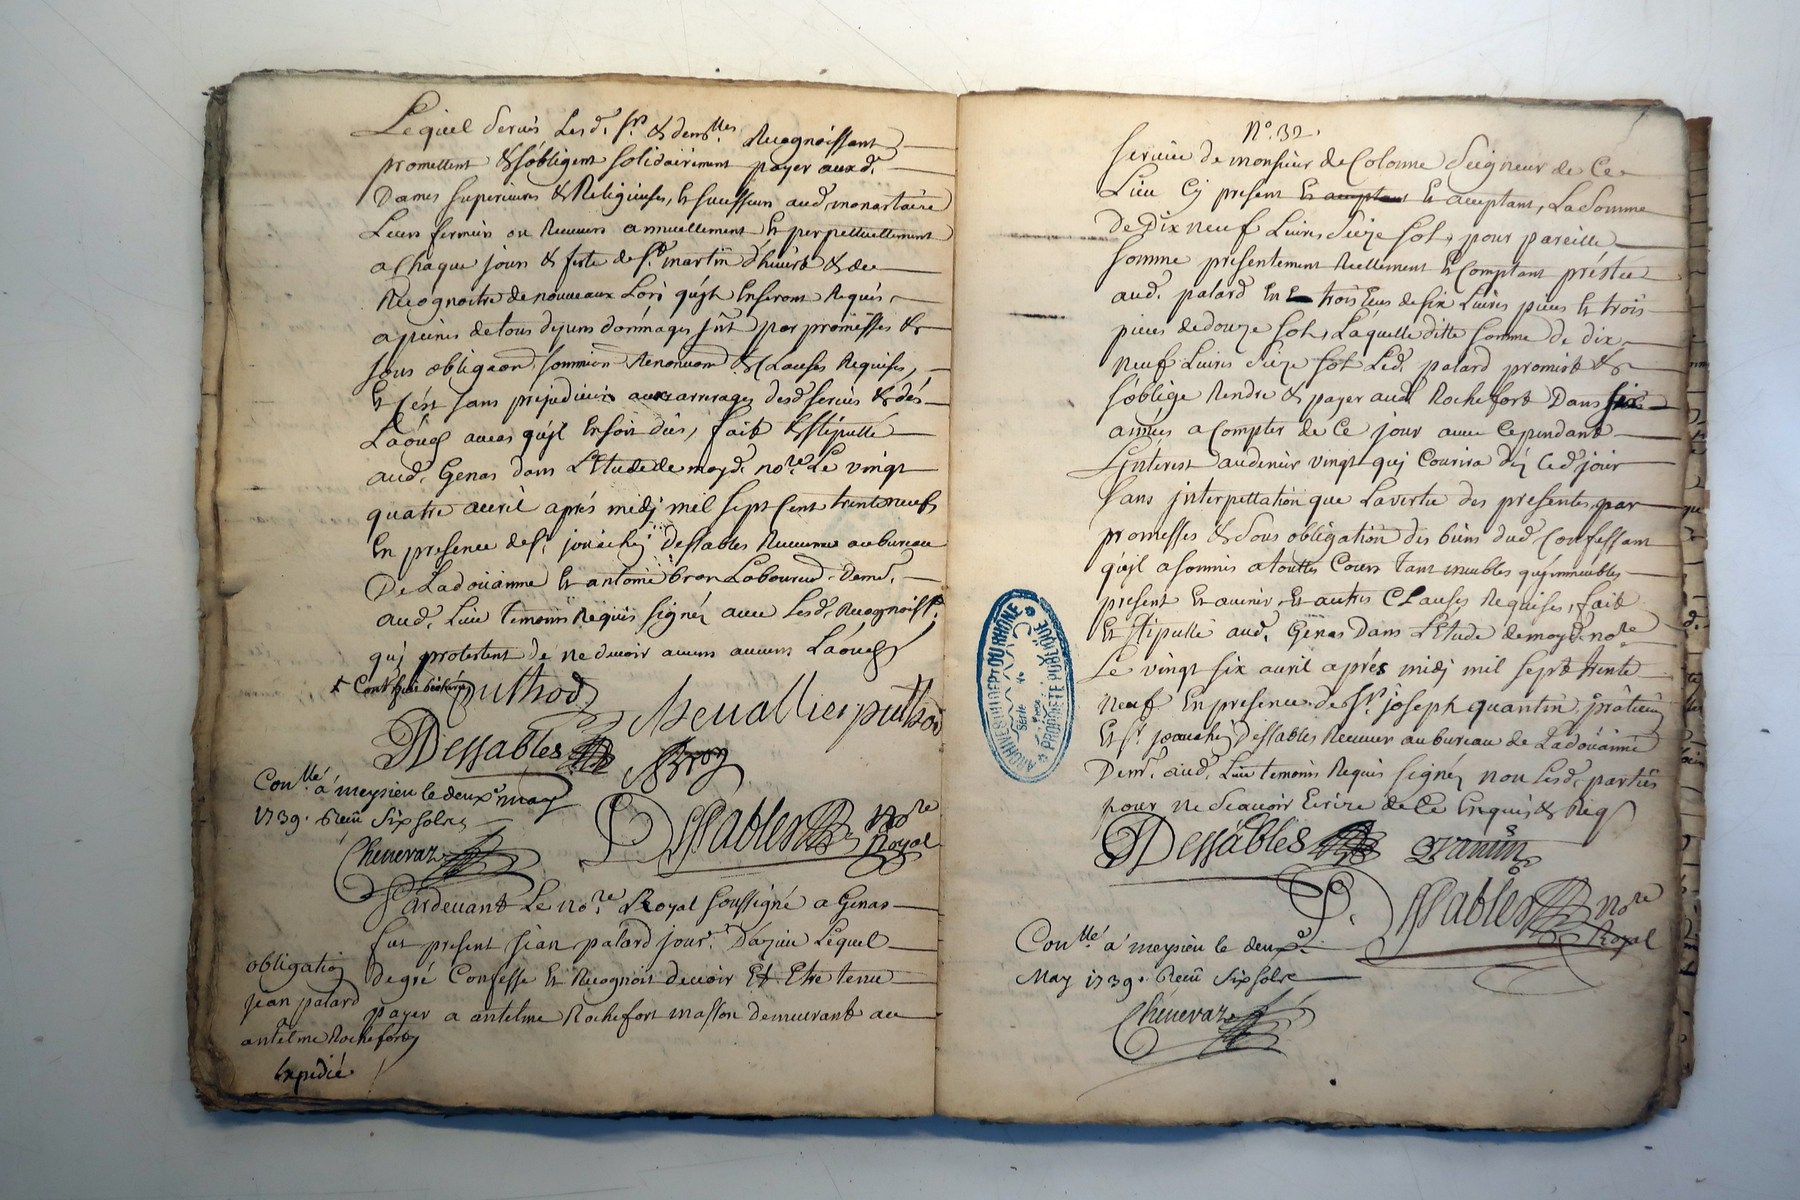 Lequel servis Lesd. Sr. & demlles Recognoissant
promettent & s'obligent solidairement payer auxd.
Dames superieures & Religieuses, & successeurs aud. monastaire
Leurs fermiers ou Receveurs annuellement Et perpettuellement
a Chaque jour & feste de St. martin d'hiverd & de
Recognoitre de nouveaux Lors qu'jls Enseront Requis
a peines de tous depens dommages par promesses &
sous obligaon. Renonciaon & Clauses Requises,
Et c'est sans prejudice aux arrerages desd. servis & des
Laouds aucas qu'jl Ensoit dus, fait & stipullé
aud. Genas dans L'Etude de moyd. nore. Le vingt
quatre avril aprés midj mil sept Cent trente neuf
En presence de Sr. Dessables Receveur au bureau
De Ladoüanne Et antoine bron Laboureur Demt.
aud. Lieu temoins Requis signéz avec Lesd. Recognoisst.
quj protestent de ne devoir aucun Laouds
puthod
Chevallier puthod
Dessables
Bron
Conllé á meysieu le deuxe may
1739. Receu Six sols
Dessables nore
Royal
Chenevaz
Pardevant Le nore. Royal soussigné a Genas
fut present Jean palard jourr. D'azieu Lequel
degré Confesse Et Recognoit devoir Et Etre tenu
payer a antelme Rochefort masson demeurant au
obligation
jean palard
antelme Rochefort
Expedié
No. 32.
service de monsieur de Colonne Seigneur de Ce
Lieu Cj present Et acceptant Et acceptant, La somme
de Dix neuf Livres seize sols, pour pareille
somme presentement Réellement Et Comptant préstée
aud. palard En trois Ecus de six Livres pieces Et trois
pieces de douze sols, Laquelle ditte somme de dix
neuf Livres seize sols Led. palard promet &
s'oblige Rendre & payer aud. Rochefort Dans six
années a Compter de Ce jour avec Cependant
L'interest audenier vingt quj Courira déz Ced. jour
sans jnterpettation que La vertu des presentes, par
promesses & sous obligation des biens dud. Confessant
qu'jl a soumis a touttes Cours tant meubles qu'jmmeubles
present Et avenir, Et autres Clauses Requises, fait
Et stipullé aud. Genas Dans L'Etude de moyd. nore
Le vingt six avril aprés midj mil sept trente
neuf En presence de Sr. joseph quantin
Et Sr. Dessables Receveur au bureau de Ladoüanne
Demt. aud. Lieu temoins Requis signéz non Lesd. parties
pour ne Scavoir Ecrire de Ce Enquis & Reqs
Dessables
Dessables nore
Royal
Conllé á meysieu le deuxe.
May 1739. Receu Six sols
Chenevaz
ARCHIVES DU DEPT DU RHONE
Série
PROPRIÉTÉ PUBLIQUE